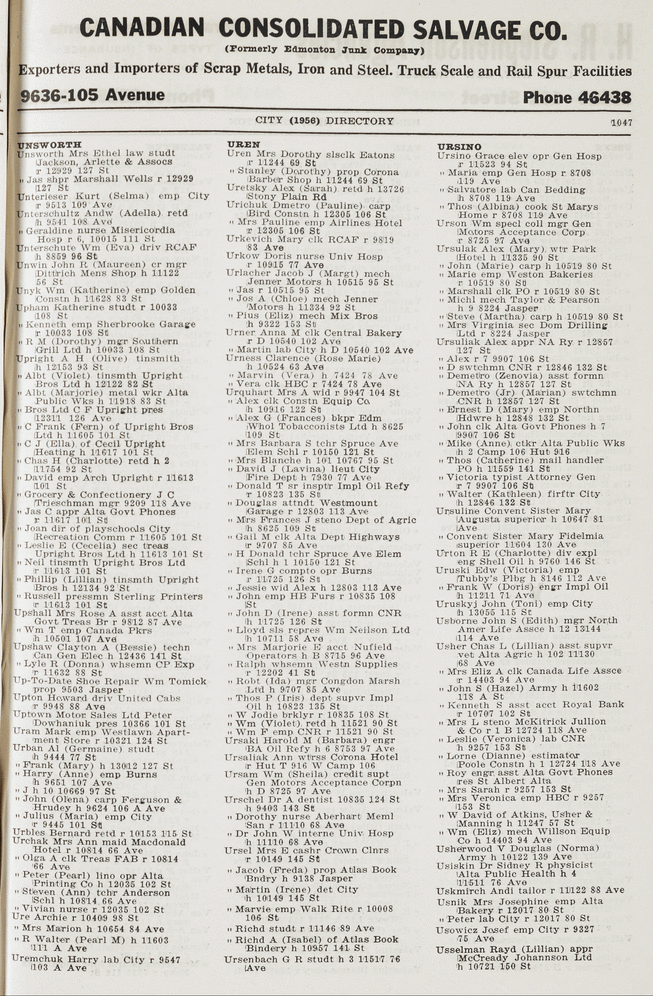 CANADIAN CONSOLIDATED SALVAGE CO.
(Formerly Edmonton Junk Company)
Exporters and Importers of Scrap Metals, Iron and Steel. Truck Scale and Rail Spur Facilities
9636-105 Avenue Phone 46438
CITY (1956) DIRECTORY 1047
UNSWORTH
Unsworth Mrs Ethel law studt
Jackson, Arlette & Assocs
r 12929 127 St
" Jas shpr Marshall Wells r 12929
127 St
Unterieser Kurt (Selma) emp City
r 9513 109 Ave
Unterschultz Andw (Adella) retd
h 9541 108 Ave
" Geraldine nurse Misericordia
Hosp r 6, 10015 111 St
Unterschute Wm (Eva) driv RCAF
h 8859 96 St
Unwin John R (Maureen) cr mgr
Dittrich Mens Shop h 11122
56 St
Unyk Wm (Katherine) emp Golden
Constn h 11628 83 St
Upham Katherine studt r 10033
108 St
" Kenneth emp Sherbrooke Garage
r 10033 108 St
" R M (Dorothy) mgr Southern
Grill Ltd h 10033 108 St
Upright A H (Olive) tinsmith
h 12153 93 St
" Albt (Violet) tinsmth Upright
Bros Ltd h 12122 82 St
" Albt (Marjorie) metal wkr Alta
Public Wks h 11918 83 St
" Bros Ltd C F Upright pres
12311 126 Ave
" C Frank (Fern) of Upright Bros
Ltd h 11605 101 St
" C J (Ella) of Cecil Upright
Heating h 11617 101 St
" Chas H (Charlotte) retd h 2
11754 92 St
" David emp Arch Upright r 11613
101 St
" Grocery & Confectionery J C
Trieschman mgr 9209 118 Ave
" Jas C appr Alta Govt Phones
r 11617 101 St
" Joan dir of playschools City
Recreation Comm r 11605 101 St
" Leslie E (Cecelia) sec treas
Upright Bros Ltd h 11613 101 St
" Neil tinsmth Upright Bros Ltd
r 11613 101 St
" Phillip (Lillian) tinsmth Upright
Bros h 12134 92 St
" Russell pressmn Sterling Printers
r 11613 101 St
Upshall Mrs Rose A asst acct Alta
Govt Treas Br r 9812 87 Ave
" Wm T emp Canada Pkrs
h 10501 107 Ave
Upshaw Clayton A (Bessie) techn
Can Gen Elec h 12436 141 St
" Lyle R (Donna) whsemn CP Exp
r 11632 88 St
Up-To-Date Shoe Repair Wm Tomick
prop 9503 Jasper
Upton Howard driv United Cabs
r 9948 88 Ave
Uptown Motor Sales Ltd Peter
Dowhaniuk pres 10366 101 St
Uram Mark emp Westlawn Apart-
ment Store r 10321 124 St
Urban Al (Germaine) studt
h 9444 77 St
" Frank (Mary) h 13012 127 St
" Harry (Anne) emp Burns
h 9651 107 Ave
" J h 10 10669 97 St
" John (Olena) carp Ferguson &
Hrudey h 9624 106 A Ave
" Julius (Maria) emp City
r 9445 101 St
Urbles Bernard retd r 10153 115 St
Urchak Mrs Ann maid Macdonald
Hotel r 10814 66 Ave
" Olga A clk Treas FAB r 10814
66 Ave
" Peter (Pearl) lino opr Alta
Printing Co h 12035 102 St
" Steven (Ann) tchr Anderson
Schl h 10814 66 Ave
" Vivian nurse r 12035 102 St
Ure Archie r 10409 98 St
" Mrs Marion h 10654 84 Ave
" R Walter (Pearl M) h 11603
111 A Ave
Uremchuk Harry lab City r 9547
103 A Ave
UREN
Uren Mrs Dorothy slsclk Eatons
r 11244 69 St
" Stanley (Dorothy) prop Corona
Barber Shop h 11244 69 St
Uretsky Alex (Sarah) retd h 13726
Stony Plain Rd
Urichuk Dmetro (Pauline) carp
Bird Constn h 12305 106 St
" Mrs Pauline emp Airlines Hotel
r 12305 106 St
Urkevich Mary clk RCAF r 9819
83 Ave
Urkow Doris nurse Univ Hosp
r 10915 77 Ave
Urlacher Jacob J (Margt) mech
Jenner Motors h 10515 95 St
" Jas r 10515 95 St
" Jos A (Chloe) mech Jenner
Motors h 11334 92 St
" Pius (Eliz) mech Mix Bros
h 9322 153 St
Urner Anna M clk Central Bakery
r D 10540 102 Ave
" Martin lab City h D 10540 102 Ave
Urness Clarence (Rose Marie)
h 10524 63 Ave
" Marvin (Vera) h 7424 78 Ave
" Vera clk HBC r 7424 78 Ave
Urquhart Mrs A wid r 9947 104 St
" Alex clk Constn Equip Co.
h 10916 122 St
" Alex G (Frances) bkpr Edm
Whol Tobacconists Ltd h 8625
109 St
" Mrs Barbara S tchr Spruce Ave
Elem Schl r 10150 121 St
" Mrs Blanche h 101 10767 95 St
" David J (Lavina) lieut City
Fire Dept h 7930 77 Ave
" Donald T ss insptr Impl Oil Refy
r 10823 135 St
" Douglas attndt Westmount
Garage r 12803 113 Ave
" Mrs Frances J steno Dept of Agric
h 8625 109 St
" Gail M clk Alta Dept Highways
r 9707 85 Ave
" H Donald tchr Spruce Ave Elem
Schl h 1 10150 121 St
" Irene G compto opr Burns
r 11725 126 St
" Jessie wid Alex h 12803 113 Ave
" John emp HB Furs r 10835 108
St
" John D (Irene) asst formn CNR
h 11725 126 St
" Lloyd sls repres Wm Neilson Ltd
h 10711 58 Ave
" Mrs Marjorie E acct Nufield
Operators h B 8715 96 Ave
" Ralph whsemn Westn Supplies
r 12202 41 St
" Robt (Ida) mgr Congdon Marsh
Ltd h 9707 85 Ave
" Thos P (Iris) dept supvr Impl
Oil h 10823 135 St
" W Jodie brklyr r 10835 108 St
" Wm (Violet) retd h 11521 90 St
" Wm F emp CNR r 11521 90 St
Ursaki Harold M (Barbara) engr
BA Oil Refy h 6 8753 97 Ave
Ursalink Ann wtrss Corona Hotel
r Hut T 916 W Camp 106
Ursam Wm (Sheila) credit supt
Gen Motors Acceptance Corpn
h D 8725 97 Ave
Urschel Dr A dentist 10835 124 St
h 9403 143 St
" Dorothy nurse Aberhart Meml
San r 11110 68 Ave
" Dr John W interne Univ Hosp
h 11110 68 Ave
Ursel Mrs E cashr Crown Clnrs
r 10149 145 St
" Jacob (Freda) prop Atlas Book
Bndry h 9138 Jasper
" Martin (Irene) det City
h 10149 145 St
" Marvie emp Walk Rite r 10008
106 St
" Richd studt r 11146 89 Ave
" Richd A (Isabel) of Atlas Book
Bindery h 10957 141 St
Ursenbach G R studt h 3 11517 76
Ave
URSINO
Ursino Grace elev opr Gen Hosp
r 11523 94 St
" Maria emp Gen Hosp r 8708
119 Ave
" Salvatore lab Can Bedding
h 8708 119 Ave
" Thos (Albina) cook St Marys
Home r 8708 119 Ave
Urson Wm specl coil mgr Gen
Motors Acceptance Corp
r 8725 97 Ave
Ursulak Alex (Mary) wtr Park
Hotel h 11335 90 St
" John (Marie) carp h 10519 80 St
" Marie emp Weston Bakeries
r 10519 80 St
" Marshall clk PO r 10519 80 St
" Michl mech Taylor & Pearson
h 9 8224 Jasper
" Steve (Martha) carp h 10519 80 St
" Mrs Virginia sec Dom Drilling
Ltd r 8224 Jasper
Ursuliak Alex appr NA Ry r 12857
127 St
" Alex r 7 9907 106 St
" D swtchmn CNR r 12846 132 St
" Demetro (Zenovia) asst formn
NA Ry h 12857 127 St
" Demetro (Jr) (Marian) swtchmn
CNR h 12857 127 St
" Ernest D (Mary) emp Northn
Hdwre h 12848 132 St
" John clk Alta Govt Phones h 7
9907 106 St
" Mike (Anne) ctkr Alta Public Wks
h 2 Camp 106 Hut 916
" Thos (Catherine) mail handler
PO h 11559 141 St
" Victoria typist Attorney Gen
r 7 9907 106 St
" Walter (Kathleen) firftr City
h 12846 132 St
Ursuline Convent Sister Mary
Augusta superior h 10647 81
Ave
" Convent Sister Mary Fidelmia
superior 11604 130 Ave
Urton R E (Charlotte) div expl
eng Shell Oil h 9760 146 St
Uruski Edw (Victoria) emp
Tubby's Plbg h 8146 112 Ave
" Frank W (Doris) engr Impl Oil
h 11211 71 Ave
Uruskyj John (Toni) emp City
h 13055 115 St
Usborne John S (Edith) mgr North
Amer Life Assce h 12 13144
114 Ave
Usher Chas L (Lillian) asst supvr
vet Alta Agric h 102 11130
68 Ave
" Mrs Eliz A clk Canada Life Assce
r 14403 94 Ave
" John S (Hazel) Army h 11602
118 A St
" Kenneth S asst acct Royal Bank
r 10707 102 St
" Mrs L steno McKitrick Jullion
& Co r 1 B 12724 118 Ave
" Leslie (Veronica) lab CNR
h 9257 153 St
" Lorne (Dianne) estimator
Poole Constn h 1 12724 118 Ave
" Roy engr asst Alta Govt Phones
res St Albert Alta
" Mrs Sarah r 9257 153 St
" Mrs Veronica emp HBC r 9257
153 St
" W David of Atkins, Usher &
Manning h 11247 57 St
" Wm (Eliz) mech Willson Equip
Co h 14403 94 Ave
Usherwood V Douglas (Norma)
Army h 10122 139 Ave
Usiskin Dr Sidney R physicist
Alta Public Health h 4
11511 76 Ave
Uskmirch Andi tailor r 11122 88 Ave
Usnik Mrs Josephine emp Alta
Bakery r 12017 80 St
" Peter lab City r 12017 80 St
Usowicz Josef emp City r 9327
75 Ave
Usselman Rayd (Lillian) appr
McCready Johannson Ltd
h 10721 150 St